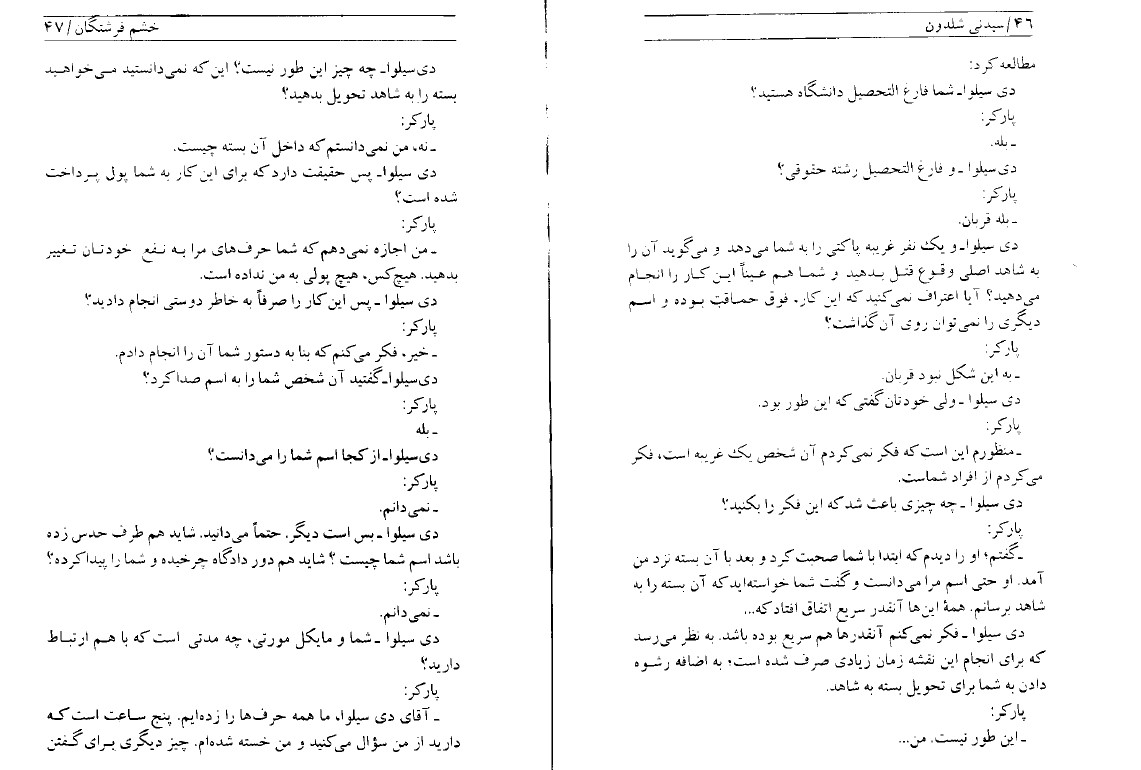 ۴۶/سیدنی شلدون
مطالعه کرد:
دی سیلواـ شما فارغ التحصیل دانشگاه هستید؟
پارکر:
ـ بله.
دی سیلوا ـ و فارغ التحصیل رشته حقوقی؟
پارکر:
ـ بله قربان.
دی سیلواـ و یک نفر غریبه پاکتی را به شما می‌دهد و می‌گوید آن را
به شاهد اصلی وقوع قتل بدهید و شما هم عیناً این کار را انجام
می‌دهید؟ آیا اعتراف نمی‌کنید که این کار، فوق حماقت بوده و اسم
دیگری را نمی‌توان روی آن گذاشت؟
پارکر:
ـ به این شکل نبود قربان.
دی سیلوا ـ ولی خودتان گفتی که این طور بود.
پارکر:
ـ منظورم این است که فکر نمی‌کردم آن شخص یک غریبه است، فکر
می‌کردم از افراد شماست.
دی سیلوا ـ چه چیزی باعث شد که این فکر را بکنید؟
پارکر:
ـ گفتم؛ او را دیدم که ابتدا با شما صحبت کرد و بعد با آن بسته نزد من
آمد. او حتی اسم مرا می‌دانست و گفت شما خواسته‌اید که آن بسته را به
شاهد برسانم. همهٔ این‌ها آنقدر سریع اتفاق افتاد که...
دی سیلوا ـ فکر نمی‌کنم آنقدرها هم سریع بوده باشد. به نظر می‌رسد
که برای انجام این نقشه زمان زیادی صرف شده است؛ به اضافه رشوه
دادن به شما برای تحویل بسته به شاهد.
پارکر:
ـ این طور نیست. من...
خشم فرشتگان/۴۷
دی سیلواـ چه چیز این طور نیست؟ این که نمی‌دانستید می‌خواهید
بسته را به شاهد تحویل بدهید؟
پارکر:
ـ نه، من نمی‌دانستم که داخل آن بسته چیست.
دی سیلواـ پس حقیقت دارد که برای این کار به شما پولی پرداخت
شده است؟
پارکر:
ـ من اجازه نمی‌دهم که شما حرف‌های مرا به نفع خودتان تغییر
بدهید. هیچ‌کس، هیچ پولی به من نداده است.
دی سیلوا ـ پس این کار را صرفاً به خاطر دوستی انجام دادید؟
پارکر:
ـ خیر، فکر می‌کنم که بنا به دستور شما آن را انجام دادم.
دی سیلواـ گفتید آن شخص شما را به اسم صدا کرد؟
پارکر:
ـ بله
دی سیلواـ از کجا اسم شما را می‌دانست؟
پارکر:
ـ نمی‌دانم.
دی سیلوا ـ بس است دیگر. حتماً می‌دانید. شاید هم طرف حدس زده
باشد اسم شما چیست ؟ شاید هم دور دادگاه چرخیده و شما را پیدا کرده؟
پارکر:
ـ نمی‌دانم.
دی سیلوا ـ شما و مایکل مورتی، چه مدتی است که با هم ارتباط
دارید؟
پارکر:
ـ آقای دی سیلوا، ما همه حرف‌ها را زده‌ایم. پنج ساعت است که
دارید از من سؤال می‌کنید و من خسته شده‌ام. چیز دیگری برای گفتن